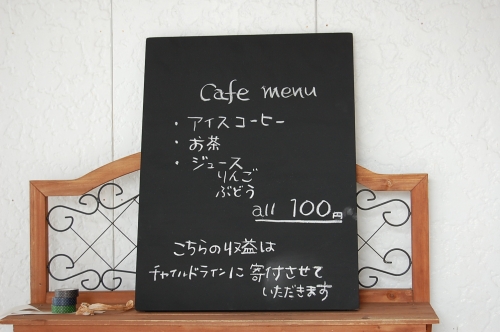 Cafe menu
・アイスコーヒー
・お茶
・ジュース
りんご
ぶどう
all 100円
こちらの収益は
チャイルドラインに寄付させて
いただきます